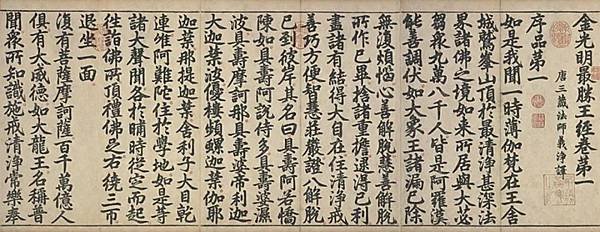 金光明最勝王經卷第一
唐三藏法師義淨譯
序品第一
如是我聞一時薄伽梵在王舍
城鷲峯山頂於最清淨甚深法
界諸佛之境如來所居與大苾
芻衆九萬八千人皆是阿羅漢
能善調伏如大象王諸漏已除
無復煩惱心善解脫慧善解脫
所作已畢捨諸重擔逮得己利
盡諸有結得大自在住清淨戒
善巧方便智慧莊嚴證八解脫
已到彼岸其名曰具壽阿若憍
陳如具壽阿說侍多具壽婆濕
波具壽摩訶那具壽婆帝利迦
大迦葉波優樓頻螺迦葉伽耶
迦葉那提迦葉舍利子大目乾
連唯阿難陀住於學地如是等
諸大聲聞各於晡時從定而起
往詣佛所頂禮佛足右繞三帀
退坐一面
復有菩薩摩訶薩百千萬億人
俱有大威德如大龍王名稱普
聞衆所知識施戒清淨常樂奉